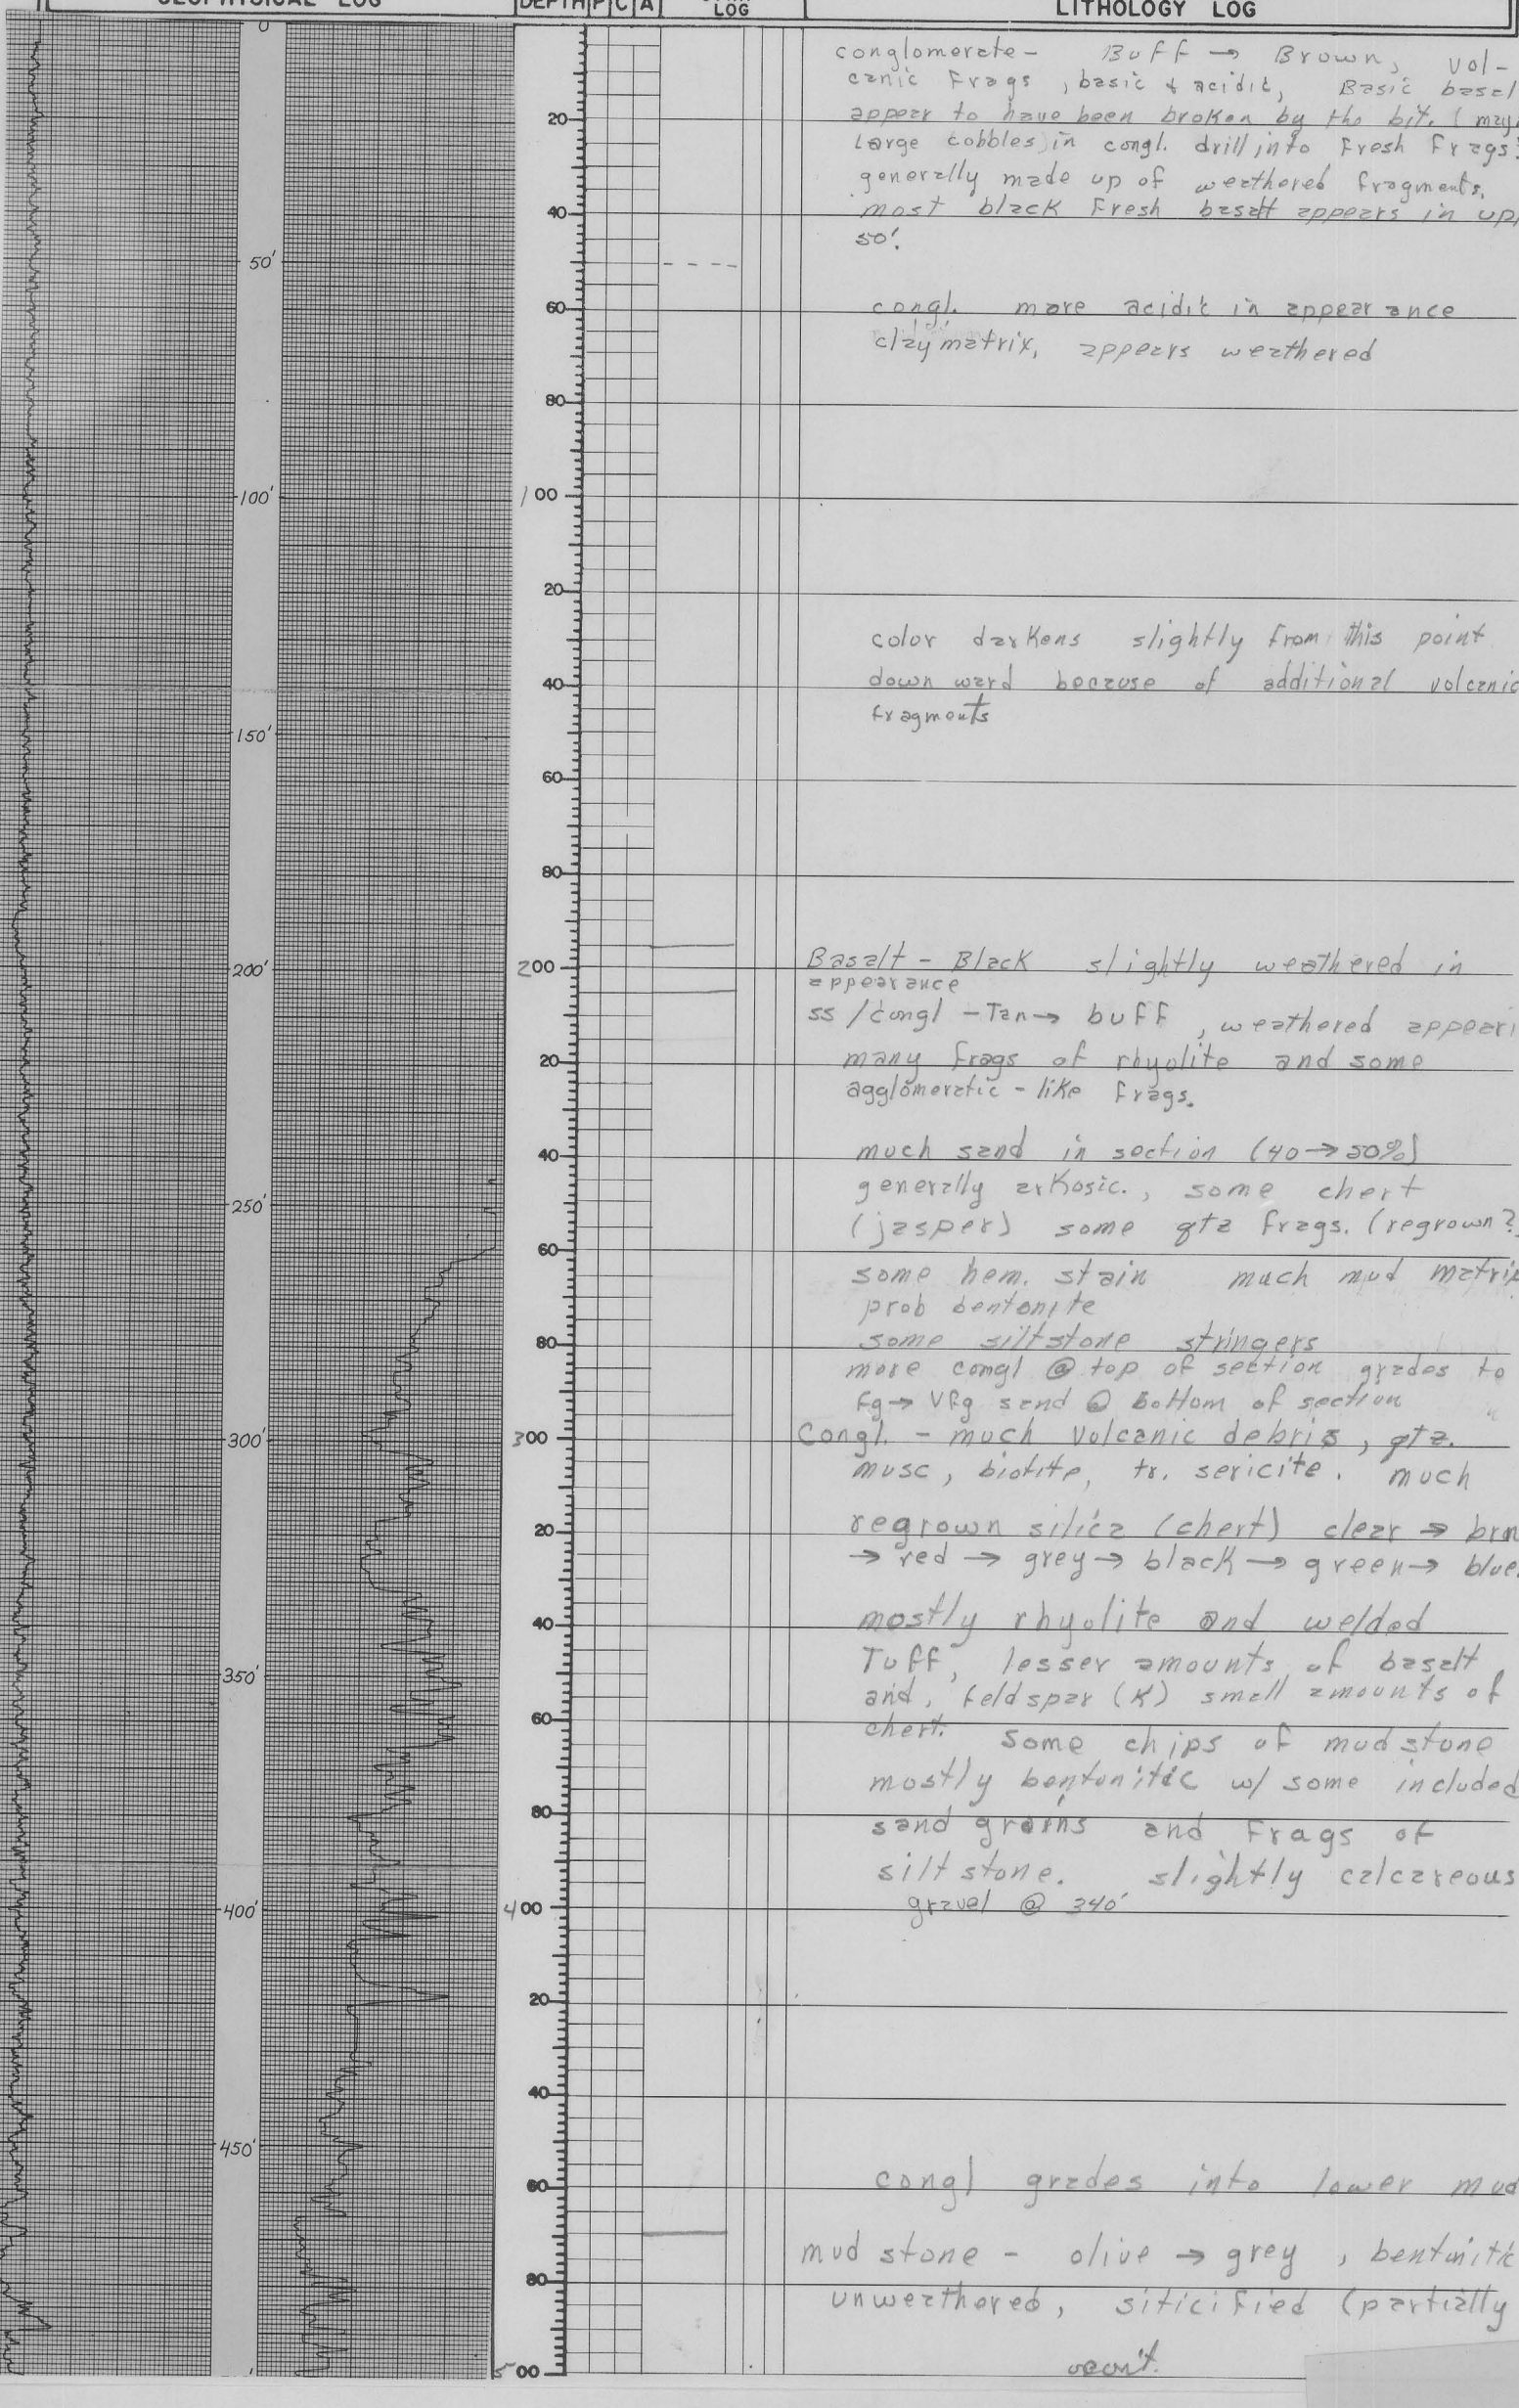 GEOPHYSICAL LOG
DEPTH P C A
LOG
LITHOLOGY LOG
0
50'
100'
150'
200'
250'
300'
350'
400'
450'
20
40
60
80
100
20
40
60
80
200
20
40
60
80
300
20
40
60
80
400
20
40
60
80
500
conglomerate - Buff → Brown, vol-
canic frags, basic & acidic, Basic basal
appear to have been broken by the bit. (may
Large cobbles) in congl. drill into fresh frags.
generally made up of weathered fragments.
most black fresh basalt appears in up
50'.
congl. more acidic in appearance
clay matrix, appears weathered
color darkens slightly from this point
down ward because of additional volcanic
fragments
Basalt - Black slightly weathered in
appearance
ss/congl - Tan → buff, weathered appeari
many frags of rhyolite and some
agglomeratic - like frags.
much sand in section (40 → 50%)
generally arkosic., some chert
(jasper) some qtz frags. (regrown?)
some hem. stain much mud matrix
prob bentonite
some siltstone stringers
more congl @ top of section grades to
fg → Vfg sand @ bottom of section
Congl. - much volcanic debris, qtz.
musc, biotite, tr. sericite. much
regrown silica (chert) clear → brn
→ red → grey → black → green → blue.
mostly rhyolite and welded
Tuff, lesser amounts of basalt
and, feldspar (K) small amounts of
chert. Some chips of mudstone
mostly bentonitic w/ some included
sand grains and frags of
siltstone. slightly calcareous
gravel @ 340'
congl grades into lower mud
mud stone - olive → grey, bentonitic
unweathered, siticified (partially
con't.